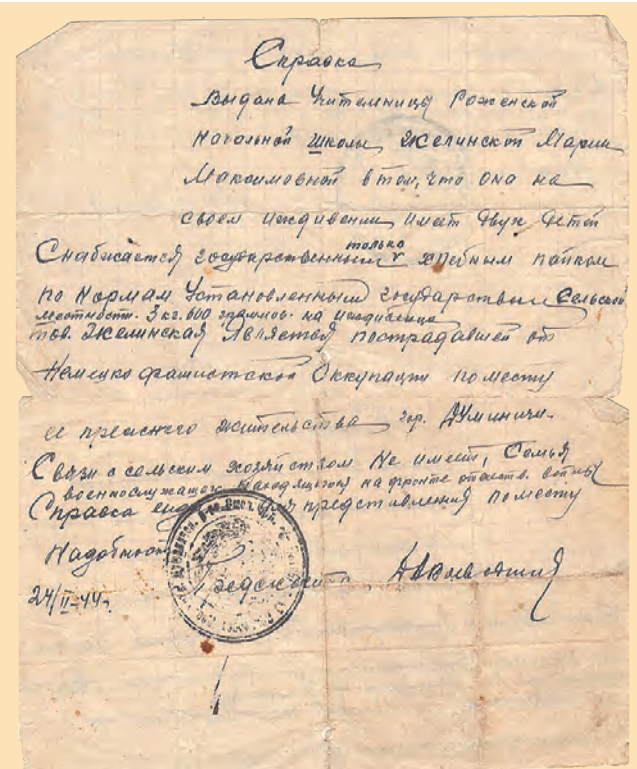 Справка
Выдана Учительницы Роженской
Начальной школы, Жилинской Марии
Максимовной в том, что она на
своем иждивении имеет двух детей
только
Снабжается государственным хлебным пайком
по нормам Установленным государством Сельской
местности. 3 кг. 600 граммов. на иждивенца
тов. Жилинская Является пострадавшей от
Немецко фашистской Оккупации по месту
ее прежнего жительства гор. Думиничи.
Связи с сельским хозяйством Не имеет, Семья
военнослужащего находящегося на фронте отечеств. войны
Справка для представления по месту
Надобности
24/II-44г.